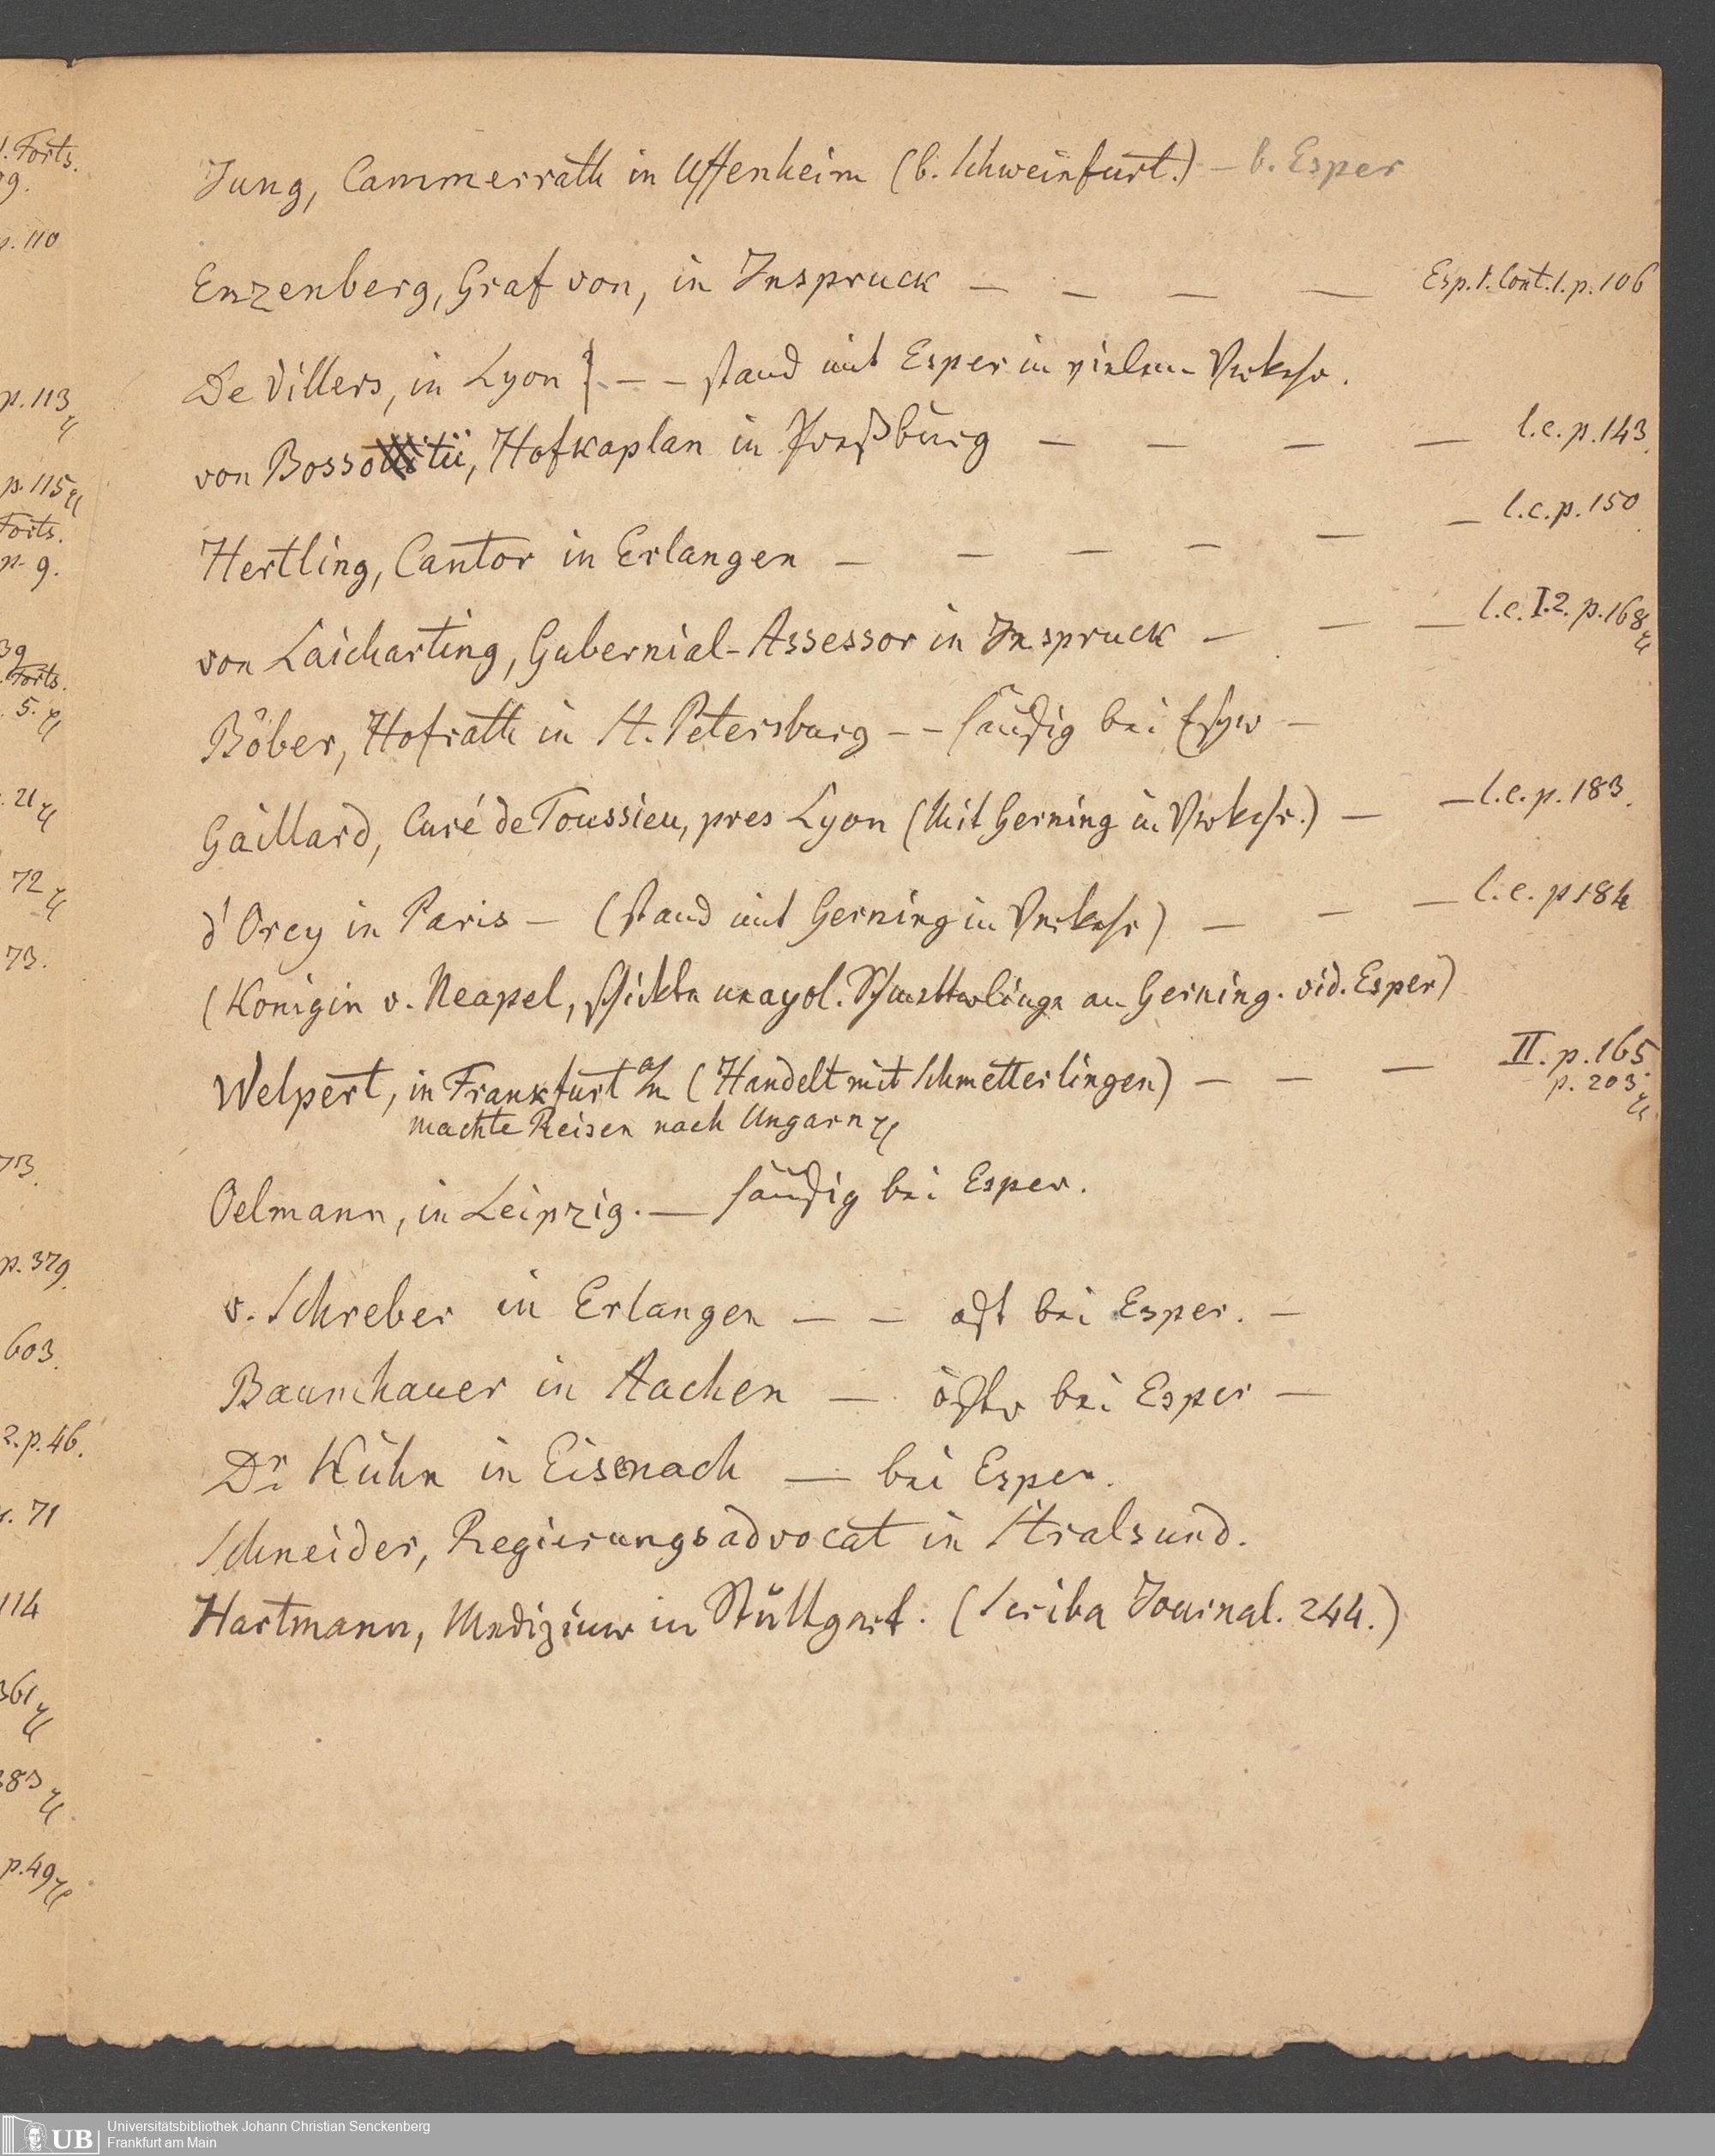 Jung, Cammerrath in Uffenheim (b. Schweinfurt.) – b. Esper
Enzenberg, Graf von, in Inspruck – – – – Esp. I. Cont. 1. p. 106
De Villers, in Lyon } – – stand mit Esper in vielem Verkehr.
von Bossoitii, Hofkaplan in Preßburg – – – – l.c. p. 143.
Hertling, Cantor in Erlangen – – – – – – l.c. p. 150
von Laicharting, Gubernial-Assessor in Inspruck – – – l.c. I.2. p. 168
Böber, Hofrath in St. Petersburg – – häufig bei Esper –
Gaillard, Curé de Toussieu, pres Lyon (Mit Gerning in Verkehr.) – – l.c. p. 183.
d'Orcy in Paris – (stand mit Gerning in Verkehr) – – – l.c. p 184
(Konigin v. Neapel, schickte neapol. Schmetterlinge an Gerning. vid. Esper)
Welpert, in Frankfurt a/m (Handelt mit Schmetterlingen) – – – II. p. 165
machte Reisen nach Ungarn p. 203
Oelmann, in Leipzig. – häufig bei Esper.
v. Schreber in Erlangen – – oft bei Esper. –
Baumhauer in Aachen – öfter bei Esper –
Dr Kühn in Eisenach – bei Esper.
Schneider, Regierungsadvocat in Stralsund.
Hartmann, Mediziner in Stuttgart. (Scriba Journal. 244.)
1. Forts.
p. 110
p. 113
p. 115
Forts.
p. 9.
39
Forts.
5.
21
72
73.
73.
p. 379.
603.
2. p. 46.
71
114
361
383
p. 49
UB
Universitätsbibliothek Johann Christian Senckenberg
Frankfurt am Main